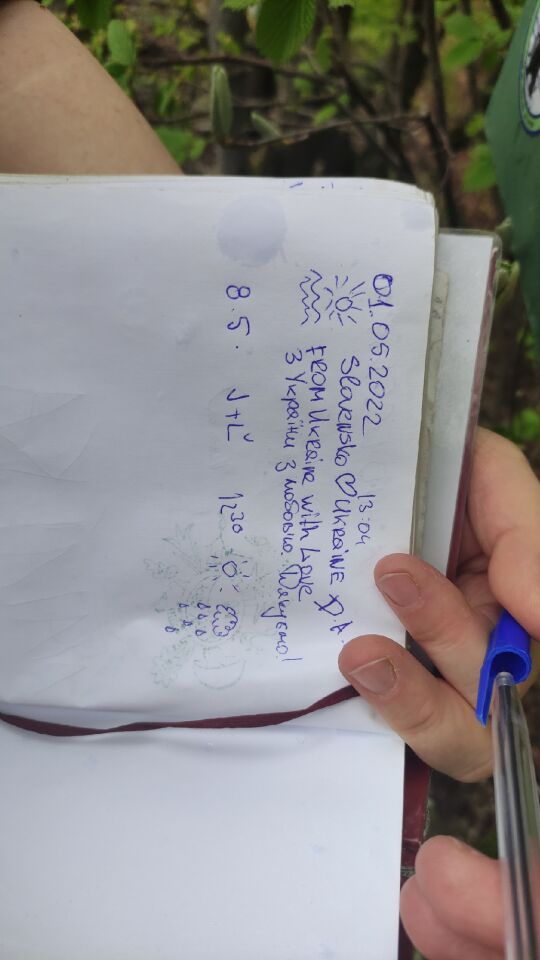 01.05.2022 13:04
Slovensko ♡ UKRAINE D.A.
FROM Ukraine with Love
З України З любовю. Дякуємо!
8.5. J+Ľ 12³⁰